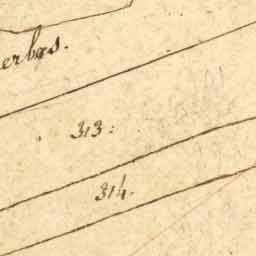 erbas.
313:
314.